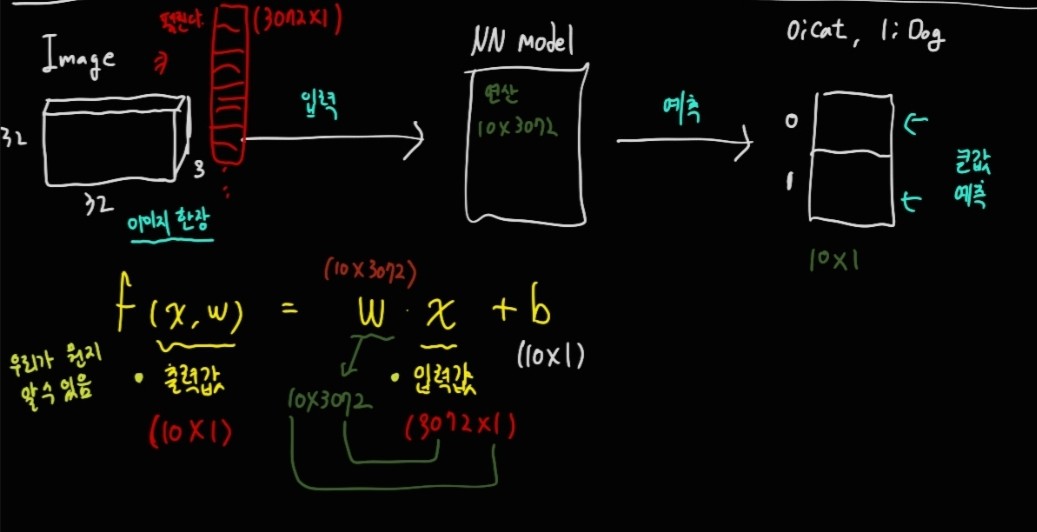 Image
펼친다
(3072x1)
32
32
3
이미지 한장
입력
NN Model
연산
10x3072
예측
0:Cat, 1:Dog
0
1
큰값
예측
10x1
(10x3072)
f(x,w) = w·x + b
(10x1)
우리가 뭔지
알수있음
• 출력값
(10x1)
10x3072
• 입력값
(3072x1)